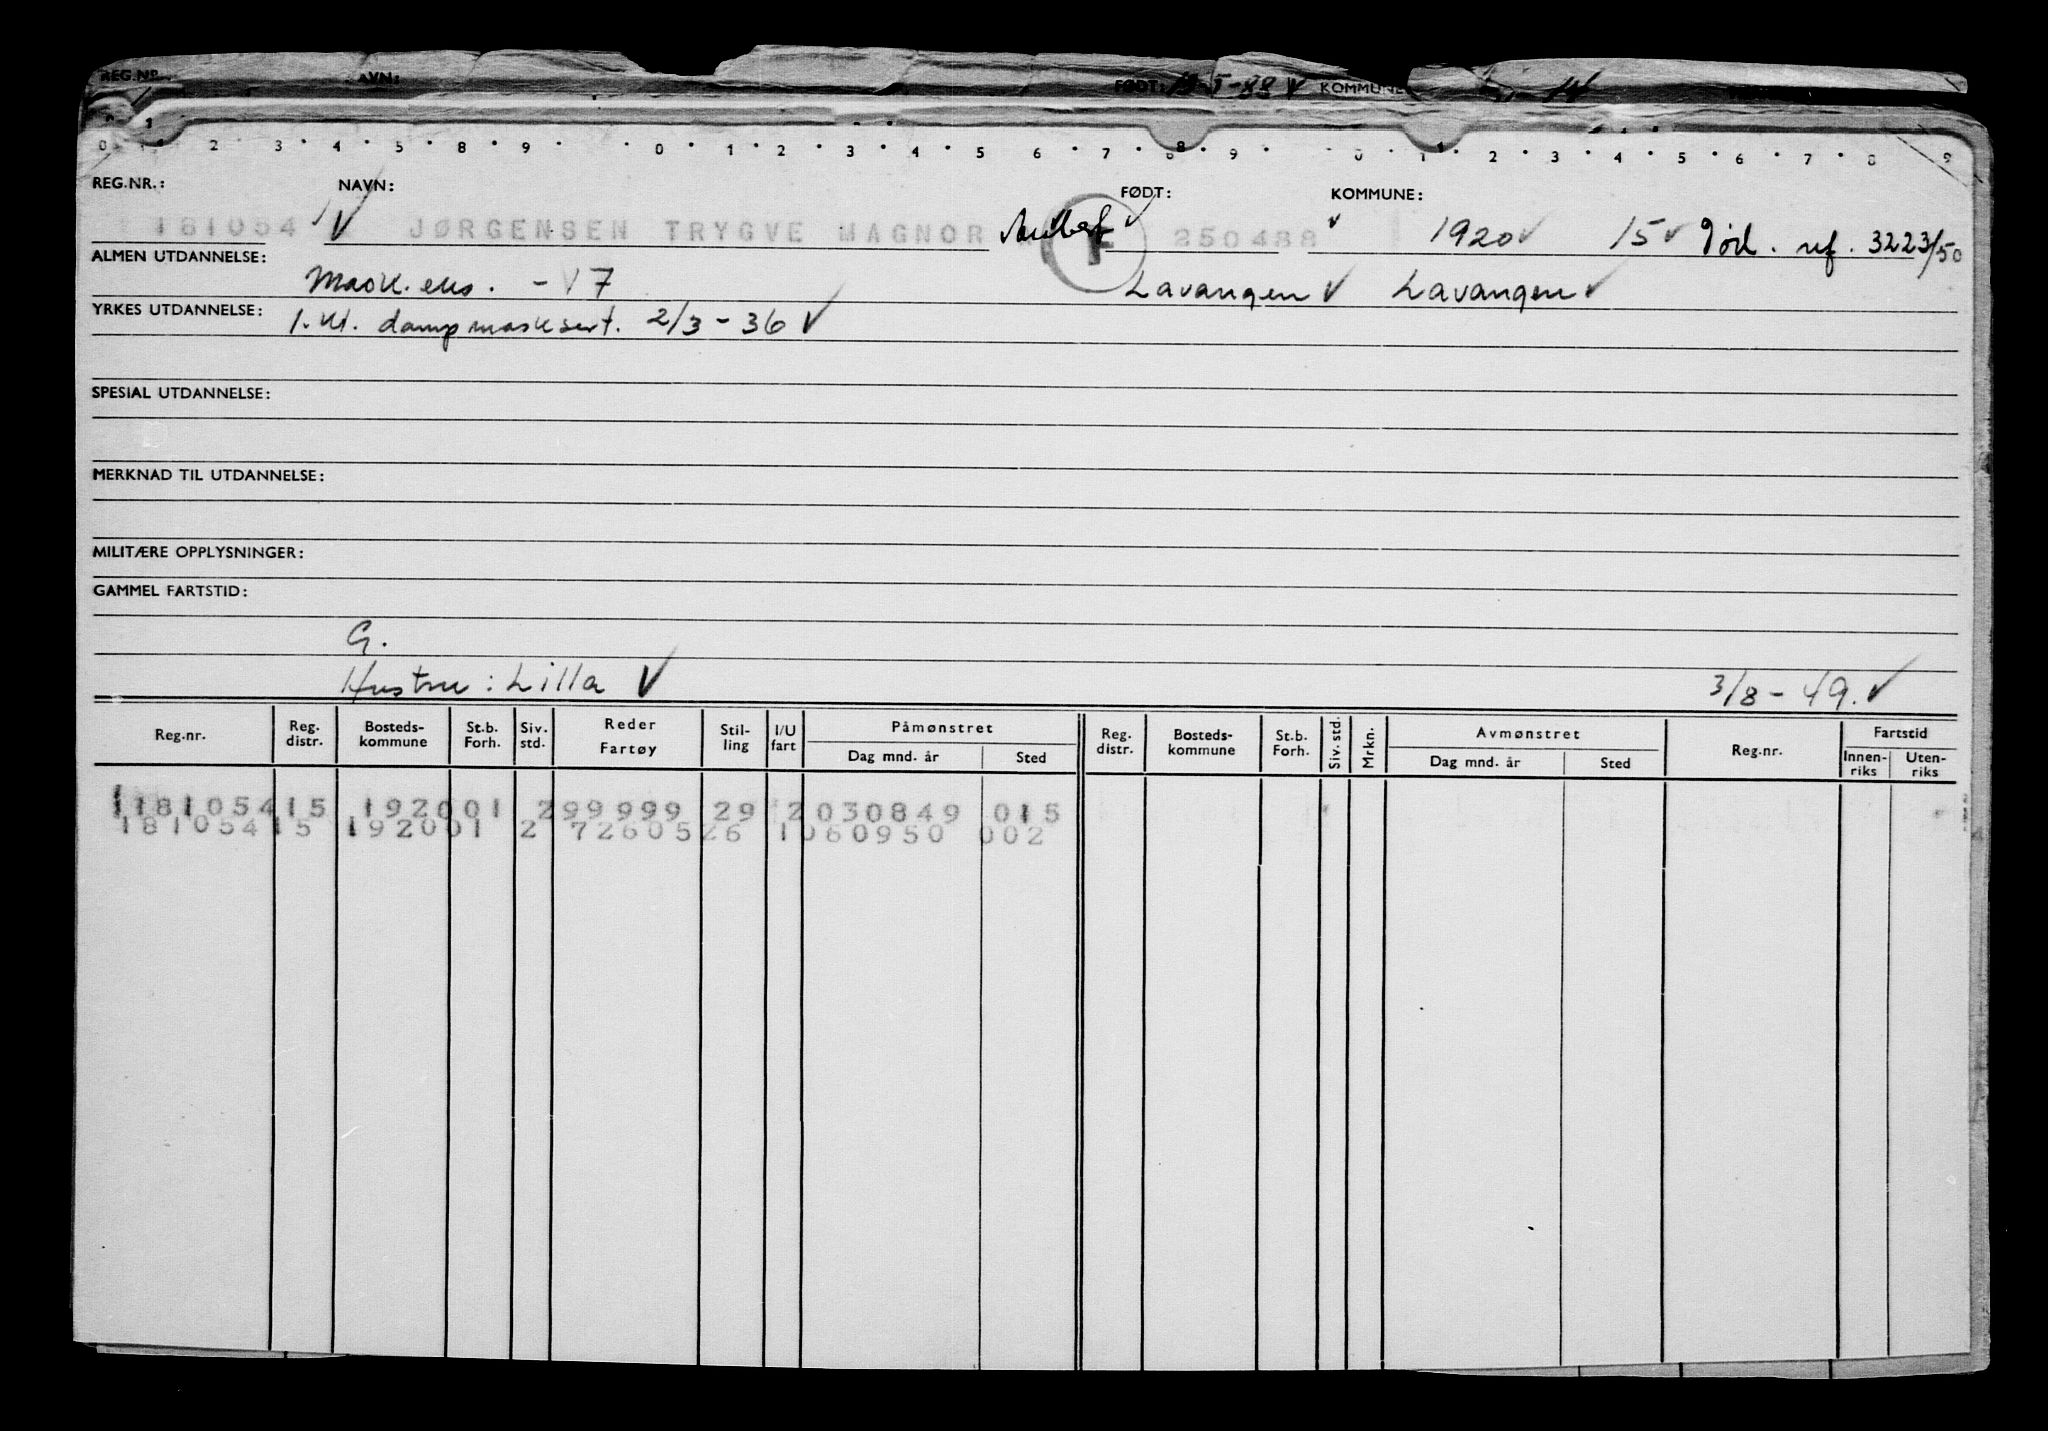 REG.NR. AVN: FØDT: 5-88 V KOMMUNE
0 1 2 3 4 5 8 9 0 1 2 3 4 5 6 7 8 9 0 1 2 3 4 5 6 7 8 9
REG.NR.: NAVN: FØDT: KOMMUNE:
181054 V JØRGENSEN TRYGVE MAGNOR F 250488 1920 15 Død. ref. 3223/50
ALMEN UTDANNELSE: Mask. eks. - 17 Lavangen V Lavangen
YRKES UTDANNELSE: 1. kl. dampmasksert. 2/3 - 36 V
SPESIAL UTDANNELSE:
MERKNAD TIL UTDANNELSE:
MILITÆRE OPPLYSNINGER:
GAMMEL FARTSTID:
G.
Hustru: Lilla V 3/8 - 49. V
Reg.nr. Reg. distr. Bosteds-kommune St.b. Forh. Siv. std. Reder Fartøy Stil-ling I/U fart Påmønstret Dag mnd. år Sted Reg. distr. Bosteds-kommune St.b. Forh. Siv. std. Mrkn. Avmønstret Dag mnd. år Sted Reg.nr. Fartstid Innen-riks Uten-riks
18105415 192001 299999 29 2030849 015
18105415 192001 2 7260526 1060950 002